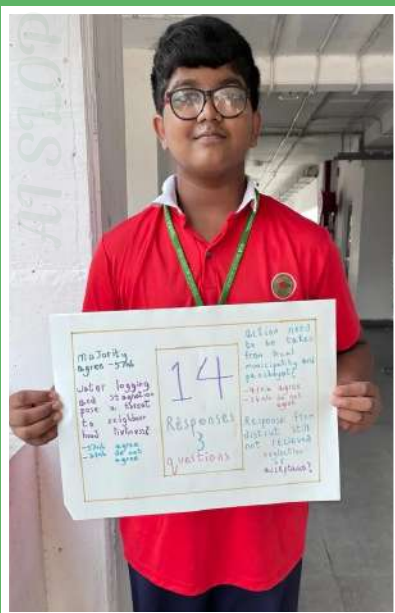 AT STOP
Majority
agree - 57%
water logging
and stagnation
pose a threat
to neighbour
hood liveness?
- 57% agree
do not
agree
14
Responses
3
questions
Action need
to be taken
from rural
municipality and
agree
do not
agree
Response from
district still
not recieved
neglection
or
acceptance?